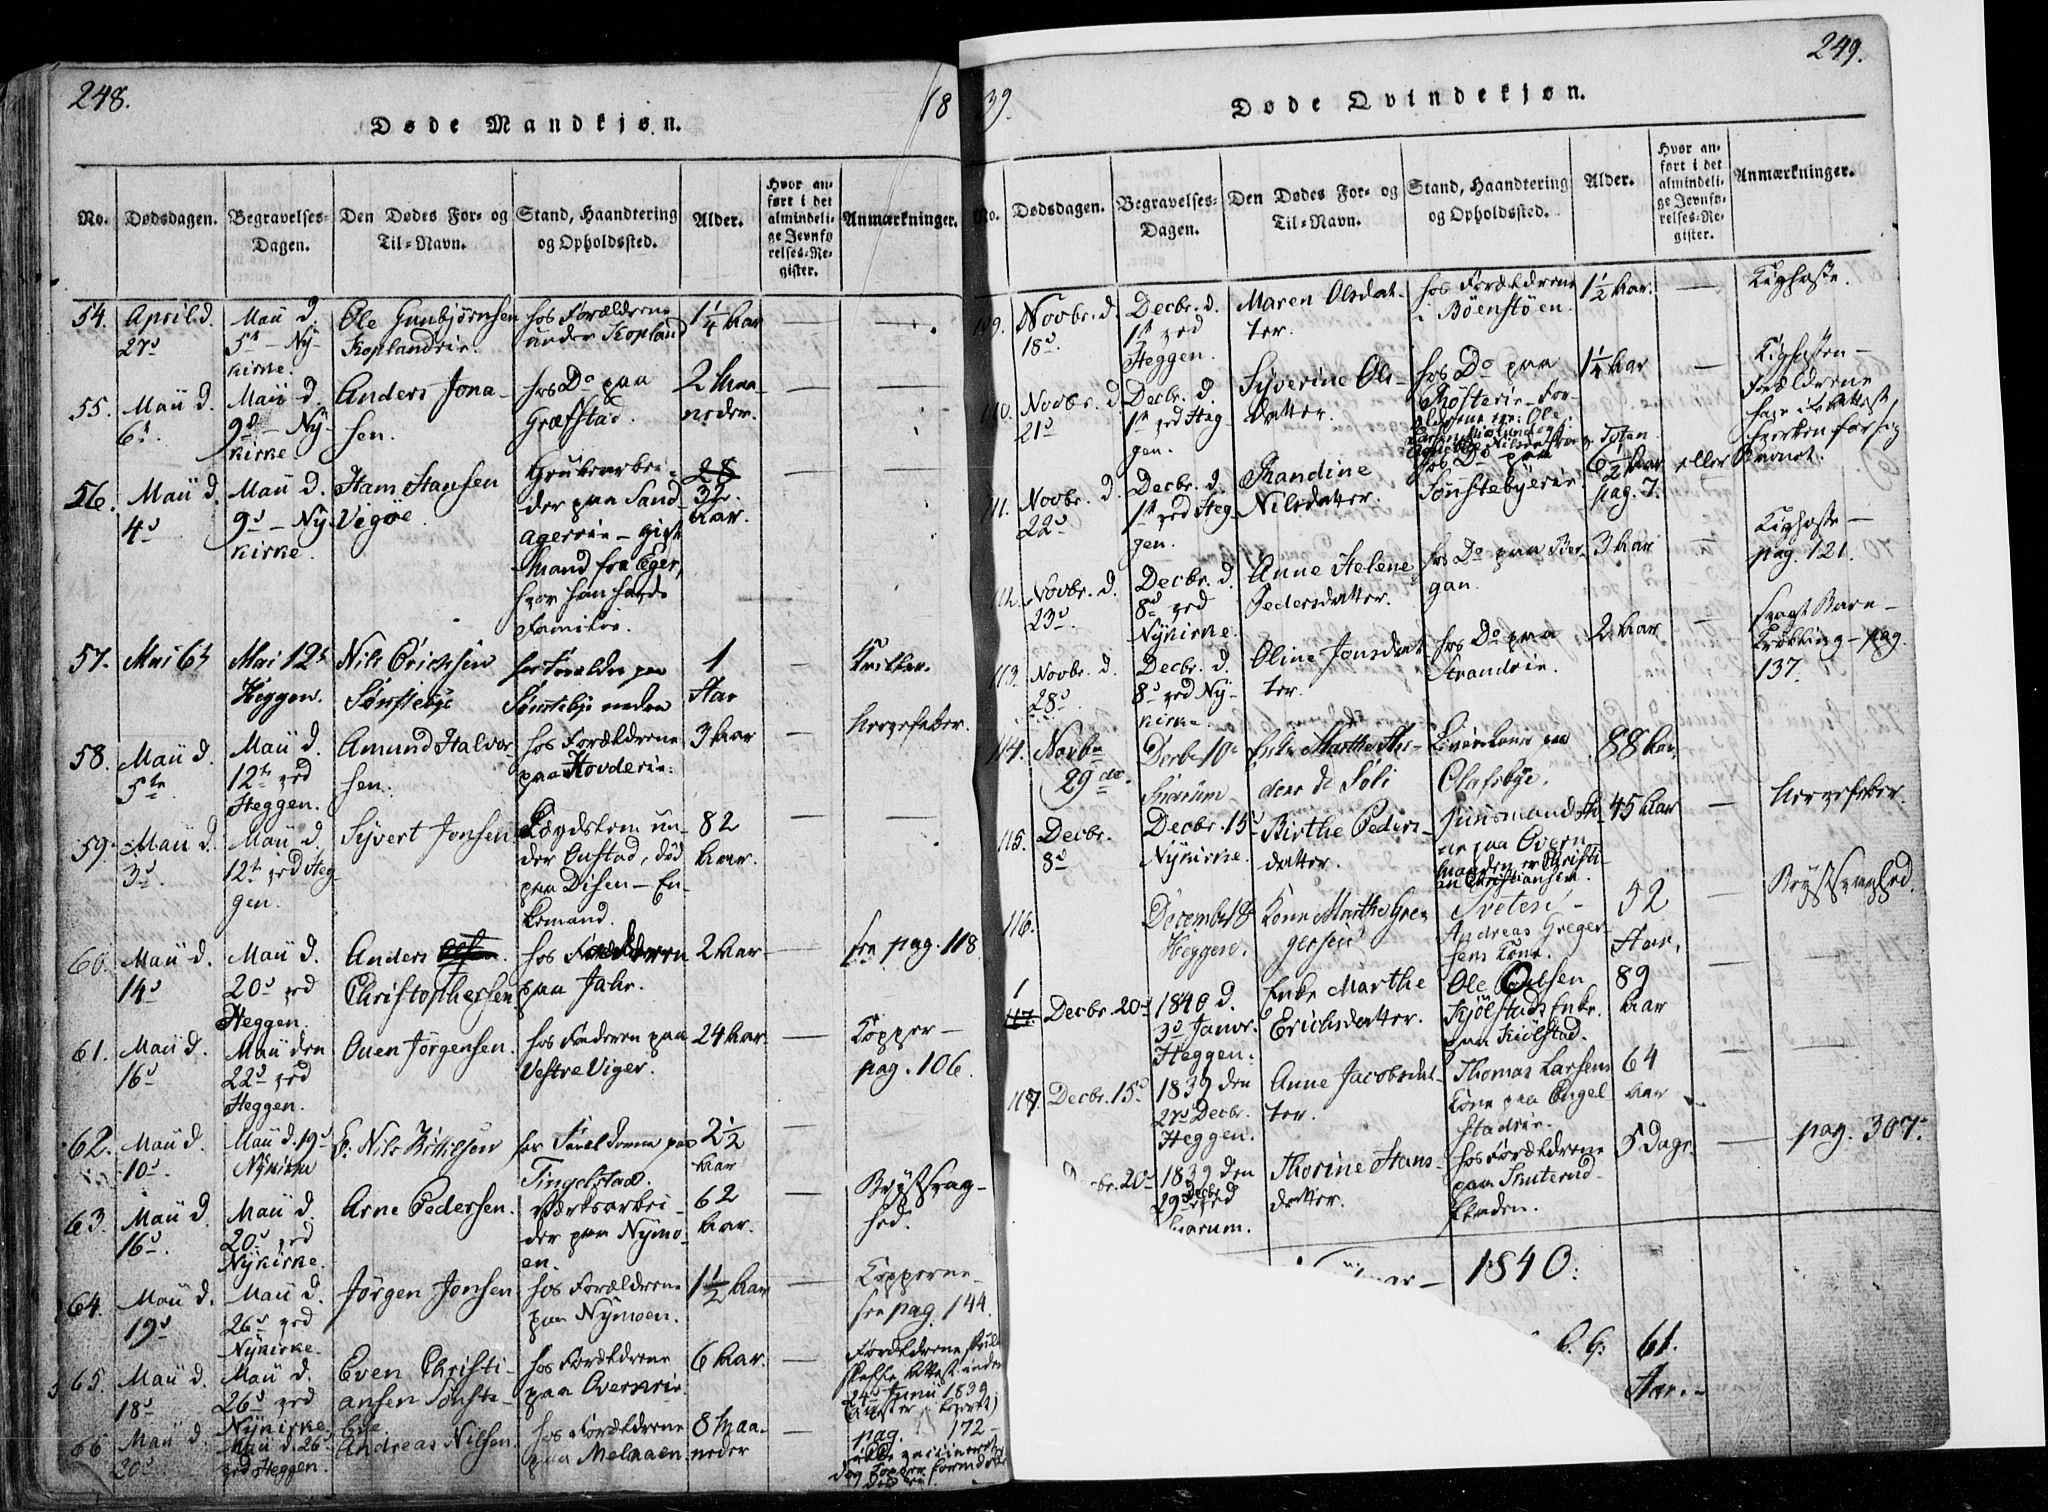 248.
18
Døde Mandkjøn.
No.
Dødsdagen.
Begravelses-
Dagen.
Den Dødes For- og
Til-Navn.
Stand, Haandtering
og Opholdssted.
Alder.
Hvor an-
ført i det
almindeli-
ge Jevnfø
relses-Re-
gister.
Anmærkninger.
54.
April d.
27d
Maii d.
5te – Ny-
kirke.
Ole Gunbjørnsen
Koplandeie.
hos Forældrene
under Kopland
1¼ Aar
55.
Maii d.
6t
Maii d.
9d – Ny-
kirke
Anders Jona-
sen.
hos Do paa
Græfstad.
2 Maa-
neder.
56.
Maii d.
4d
Maii d.
9d – Ny-
kirke.
Hans Hansen
Vigøe.
Grubearbei-
der paa Sand-
agereie – gift
Mand fra Eger,
hvor han havde
Familie.
28
32
Aar.
57.
Mai 6t
Mai 12t
Heggen.
Nils Erichsen
Sønsteby
hos Foreldre paa
Sønsteby neden
1
Aar
58.
Maii d.
5te
Maii d.
12te ved
Heggen.
Amund Halvor-
sen.
hos Forældrene
paa Hovdeeie.
3 Aar
Nervefeber.
59.
Maii d.
3d
Maii d.
12te ved Heg-
gen.
Syvert Jonsen
un-
der Onstad, død
paa Disen – En-
kemand.
82
Aar.
60.
Maii d.
14d
Maii d.
20d ved
Heggen.
Anders Olsen
Christophersen
hos Forældrene
paa Jahr.
2 Aar
see pag. 118
61.
Maii d.
16d
Maii den
22d ved
Heggen.
Ouen Jørgensen.
hos Faderen paa
Vestre Viger.
24 Aar.
Kopper –
pag. 106.
62.
Maii d.
10d
Maii d. 19d
Nykirke
Nils Kittilsen
hos Foreldrene paa
Tingelstad.
2½
Aar
63.
Maii d.
16d
Maii d.
20d ved
Nykirke.
Arne Pedersen.
Værksarbei-
der paa Nymo-
en.
62
Aar.
Brystsvag-
hed.
64.
Maii d.
19d
Maii d.
26d ved
Nykirke.
Jørgen Jonsen
hos Forældrene
paa Nymoen.
1½ Aar
Kopperne –
see pag. 144.
65.
Maii d.
18d
Maii d.
26d ved
Nykirke
Even Christi-
ansen Sønste-
bye.
hos Forældrene
paa Overneie.
6 Aar.
Forældrene skulle
skaffe Attest inden
24d Junii 1839
pag. 172 –
66
Maii d.
20d
Maii d. 26d
ved Heggen.
Andreas Nilsen.
hos Forældrene
paa Melaaen
8 Maa-
neder
39.
249.
Døde Qvindekjøn.
No.
Dødsdagen.
Begravelses-
Dagen.
Den Dødes For- og
Til-Navn.
Stand, Haandtering
og Opholdssted.
Alder.
Hvor an-
ført i det
almindeli-
ge Jevnfø-
relses-Re-
gister.
Anmærkninger.
109.
Novbr. d.
18d.
Decbr. d.
1st ved
Heggen.
Maren Olsdat-
ter.
hos Forældrene
i Bøenstøen.
1½ Aar.
Kighoste.
110.
Novbr. d.
21d
Decbr. d.
1st ved Heg-
gen.
Syverine Ols-
datter.
hos Do paa
1¼ Aar
Kighosten –
Forældrene
111.
Novbr. d.
22d
Decbr. d.
1st ved Heg-
gen.
Randine
Nilsdatter.
hos Do paa
Sønstebyeeie.
6½ Aar
pag. 7.
eller Barnet.
112.
Novbr. d.
23d
Decbr. d.
8d ved
Nykirke.
Anne Helene
Pedersdatter.
hos Do paa Ber-
gan.
3 Aar
Kighoste –
pag. 121.
113.
Novbr. d.
28d
Decbr. d.
8d ved Ny-
kirke.
Oline Jonsdat-
ter.
hos Do paa
Strandeie.
2 Aar
svagt Barn –
Krøbling – pag.
137.
114.
Novbr
29de
Decbr 19e
Snarum
Enke Marthe An-
Søli
Olafsbye.
88 Aar.
115.
Decbr.
8d
Decbr. 15d
Nykirke.
Birthe Peders-
datter.
Huusmands Ko-
ne paa Overn –
Manden er Christi-
an Christiansen.
45 Aar
Nervefeber.
116.
December 18
Heggen.
Kone Marthe Greg-
gersen
Andreas Greger-
sens Kone.
52
Aar.
Brystsvaghed.
117.
Decbr. 20d
1840 d.
3d Janvr.
Heggen.
Enke Marthe
Erichsdatter.
Ole Oulsen
Kjølstads Enke.
paa Kiølstad.
89
Aar
117.
Decbr. 15d
1839 den
27d Decbr.
Heggen.
Anne Jacobsdat-
ter.
Thomas Larsens
Kone paa Engel-
stadeie.
64
Aar
br. 20d
1839 den
29d Decbr ved
narum.
Thorine Hans-
datter.
hos Forældrene
paa Skuterud-
5 Dage.
pag. 307.
1840.
61.
Aar. –